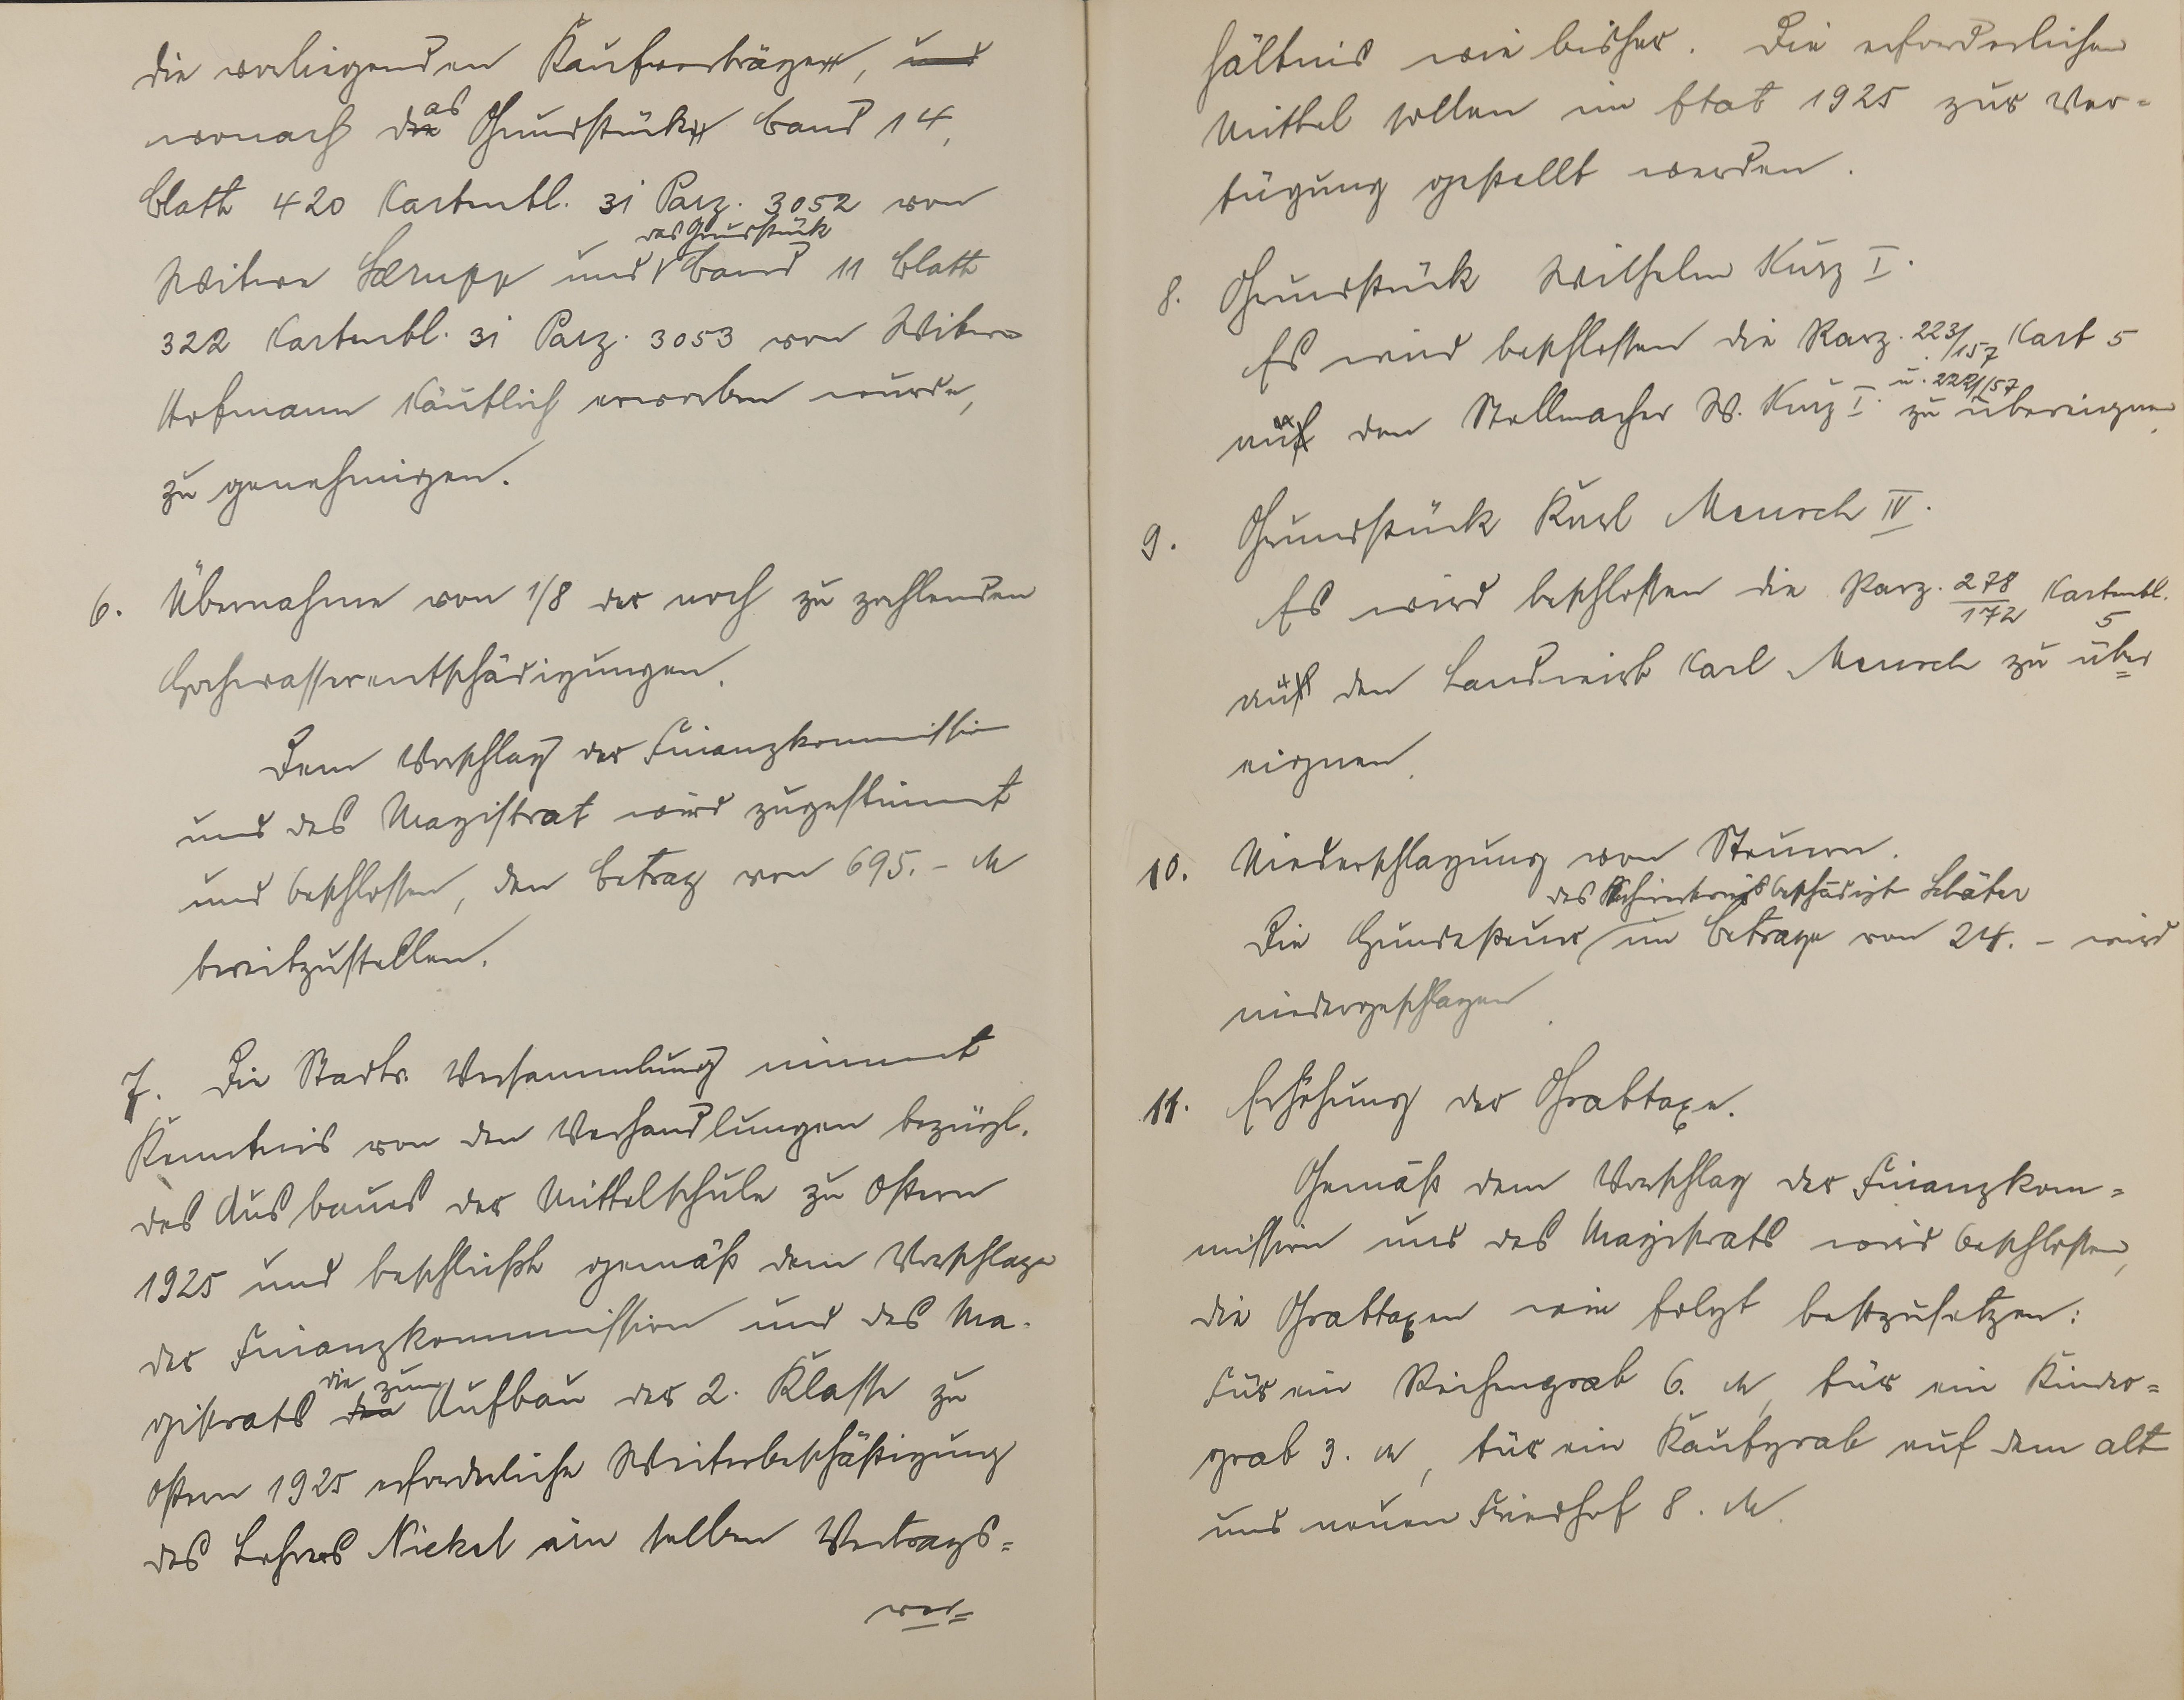 die vorliegenden Kaufverträge, und
wonach das Grundstück Band 14,
Blatt 420 Kartenbl. 31 Parz. 3052 von
das Grundstück
Witwe und Band 11 Blatt
322 Kartenbl. 31 Parz. 3053 von Witwe
Hofmann käuflich erworben wurde,
zu genehmigen.
6. Übernahme von 1/8 der noch zu zahlenden
Hochwasserentschädigungen.
Dem Vorschlag der Finanzkommission
und des Magistrat wird zugestimmt
und beschlossen, den Betrag von 695.- M
bereitzustellen.
7. Die Stadtv. Versammlung nimmt
Kenntnis von den Verhandlungen bezügl.
des Ausbaues der Mittelschule zu Ostern
1925 und beschließt gemäß dem Vorschlage
der Finanzkommission und des Ma-
die zum
gistrats den Aufbau der 2. Klasse zu
Ostern 1925 erforderliche Weiterbeschäftigung
des Lehrers Nickel im selben Vertrags=
ver=
hältnis wie bisher. Die erforderlichen
Mittel sollen im Etat 1925 zur Ver=
fügung gestellt werden.
8. Grundstück Wilhelm Kurz I.
Es wird beschlossen die Parz. 223/157 Kart 5
u. 222/157
an den Stellmacher W. Kurz I. zu übereignen.
9. Grundstück Karl Mensch IV.
Es wird beschlossen die Parz. 278/172 Kartenbl. 5
an den Landwirt Karl Mensch zu über=
eignen.
10. Niederschlagung von Steuern.
des Schwerkriegsbeschädigt Schäfer
Die Hundesteuer im Betrage von 24.- wird
niedergeschlagen.
11. Erhöhung der Grabtaxe.
Gemäß dem Vorschlag der Finanzkom=
mission und des Magistrats wird beschlossen,
die Grabtaxen wie folgt festzusetzen:
Für ein Reihengrab 6. M, für ein Kinder=
grab 3. M, für ein Kaufgrab auf dem alt
und neuen Friedhof 8. M.